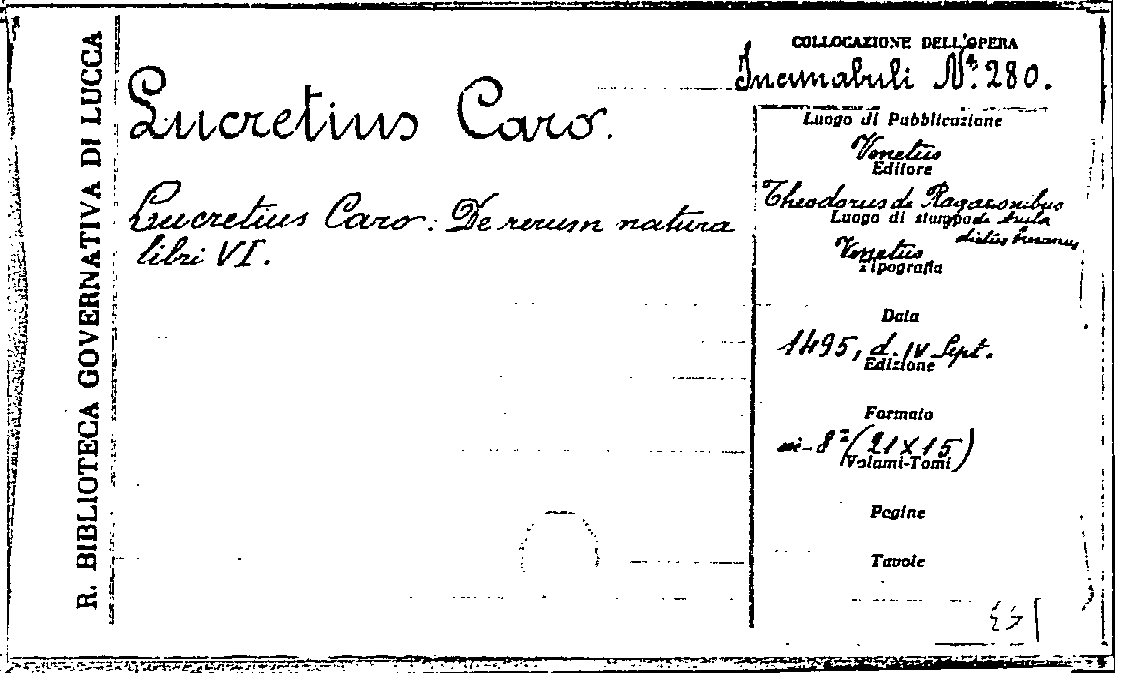 R. BIBLIOTECA GOVERNATIVA DI LUCCA
Lucretius Caro.
Lucretius Caro: De rerum natura
libri VI.
COLLOCAZIONE DELL'OPERA
Incunabuli N.º 280.
Luogo di Pubblicazione
Venetiis
Editore
Theodorus de Ragazonibus
Luogo di stampa de Asula
dictus
Venetiis
Tipografia
Data
1495, d. IV Sept.
Edizione
Formato
in-8º (21X15)
Volumi-Tomi
Pagine
Tavole